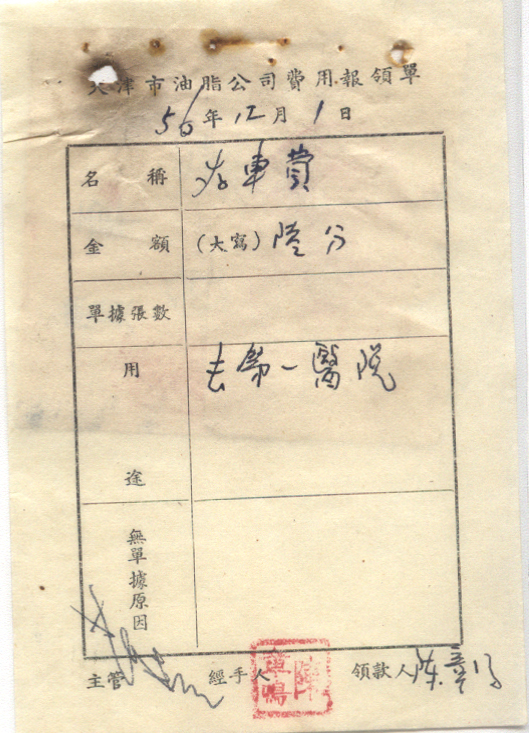 天津市油脂公司費用報領單
56年12月1日
名稱 存車費
金額 (大寫) 陸分
單據張數
用途 去第一醫院
無單據原因
主管 經手人 領款人 陈